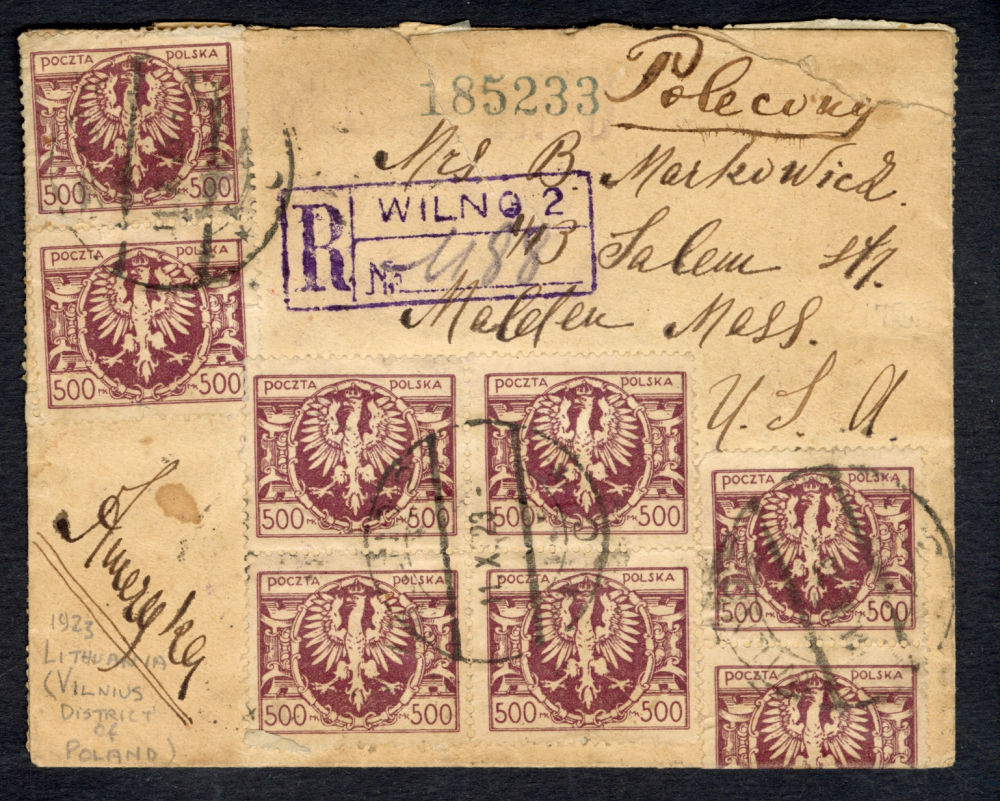 POCZTA POLSKA
500 500
POCZTA POLSKA
500 MK 500
185233
Polecony
Mrs B. Markowicz
R WILNO 2
№ 488
143 Salem str.
Malden Mass.
U. S. A.
POCZTA POLSKA
500 MK 500
POCZTA POLSKA
500 500
POCZTA POLSKA
500 MK 500
POCZTA POLSKA
500 MK 500
11 X 23
POCZTA POLSKA
500 500
POCZTA POLSKA
Ameryka
1923
LITHUANIA
(VILNIUS
DISTRICT
OF
POLAND)